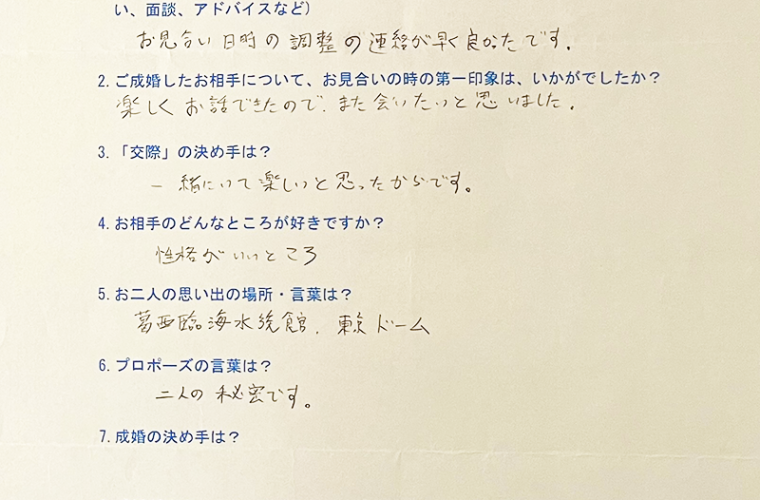 い、面談、アドバイスなど）
お見合い日時の調整の連絡が早く良かたです.
2. ご成婚したお相手について、お見合いの時の第一印象は、いかがでしたか？
楽しくお話できたので、また会いたいと思いました.
3. 「交際」の決め手は？
一緒にいて楽しいと思ったからです。
4. お相手のどんなところが好きですか？
性格がいいところ
5. お二人の思い出の場所・言葉は？
葛西臨海水族館. 東京ドーム
6. プロポーズの言葉は？
二人の秘密です。
7. 成婚の決め手は？